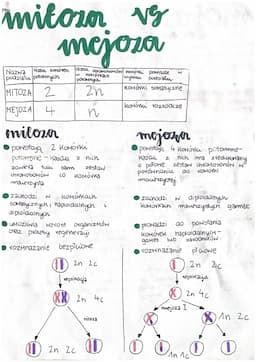 mitoza vs
mejoza
Nazwa podziału
liczba komórek potomnych
MITOZA 2 2n komórki somatyczne
MEJOZA 4 n komórki rozrodcze
mitoza
powstają 2 komórki
potomne - każda z nich
zawiera taki sam zestaw
chromosomów co komórka
macierzysta
zachodzi w komórkach
somatycznych haploidalnych i
diploidalnych
umożliwia wzrost organizmów
oraz procesy regeneracji
rozmnażanie bezpłciowe
2n 2c
replikacja
2n 4c
mitoza
2n 2c
mejoza
powstają 4 komórki potomne -
każda z nich ma zredukowany
o połowę zestaw chromosomów w
porównaniu do komórki
macierzystej
zachodzi w diploidalnych
komórkach macierzystych gamet
prowadzi do powstania
komórek haploidalnych -
gamet lub zarodników
rozmnażanie płciowe
2n 2c
replikacja
2n 4c
mejoza I
1n 2c
1n 1c